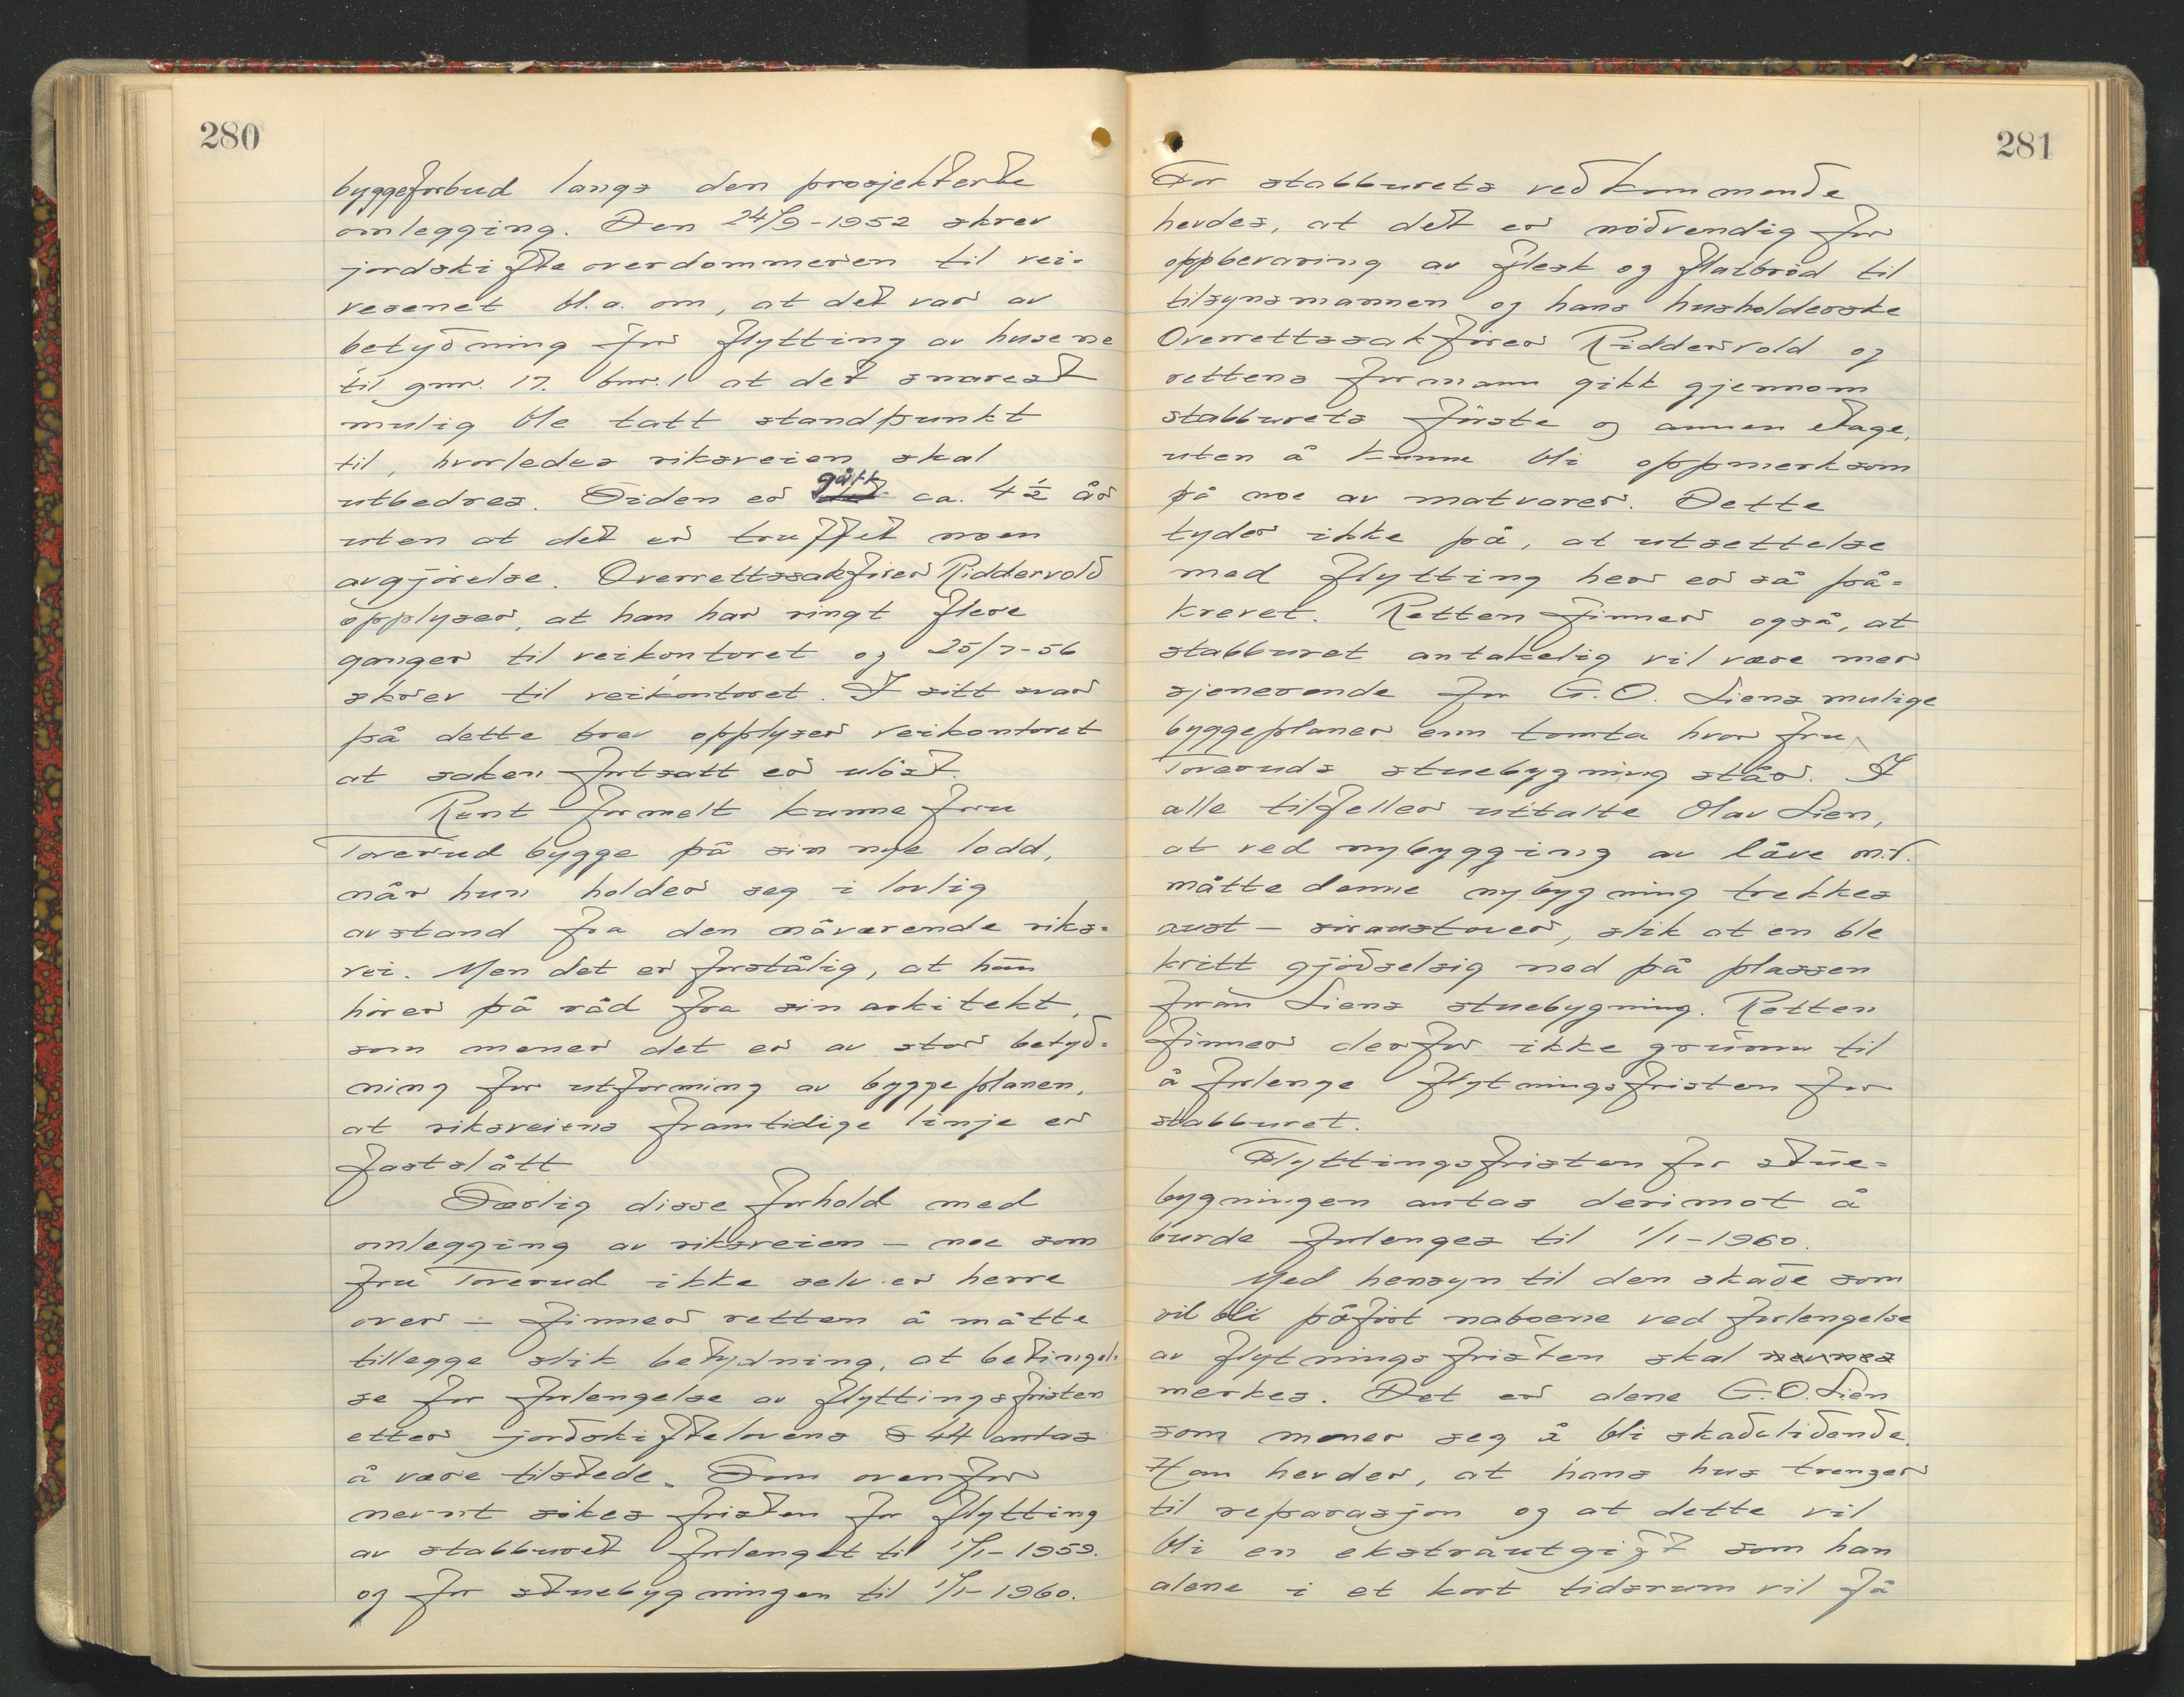 280
byggeforbud langs den prosjekterte
omlegging. Den 24/9-1952 skrev
jordskifteoverdommeren til vei-
vesenet bl.a. om, at det var av
betydning for flytting av husene
til gnr. 17. bnr. 1 at det snarest
mulig ble tatt standpunkt
til, hvorledes riksveien skal
utbedres. Tiden er gått ca. 4½ år
uten at det er truffet noen
avgjörelse. Overrettssakförer Riddervold
opplyser, at han har ringt flere
ganger til veikontoret og 25/7-56
skrev til veikontoret. I sitt svar
på dette brev opplyser veikontoret
at saken fortsatt er ulöst.
Rent formelt kunne fru
Toverud bygge på sin nye lodd,
når hun holder seg i lovlig
avstand fra den nåværende riks-
vei. Men det er forstålig, at hun
hörer på råd fra sin arkitekt,
som mener det er av stor betyd-
ning for utforming av byggeplanen,
at riksveiens framtidige linje er
fastslått
Særlig disse forhold med
omlegging av riksveien - noe som
fru Toverud ikke selv er herre
over - finner retten å måtte
tillegge slik betydning, at betingel-
se for forlengelse av flyttingsfristen
etter jordskiftelovens § 44 antas
å være tilstede. Som ovenfor
nevnt sökes fristen for flytting
av stabburet forlenget til 1/1-1959.
og for stuebygningen til 1/1-1960.
281
For stabburets vedkommende
hevdes, at det er nödvendig for
oppbevaring av flesk og flatbröd til
tilsynsmannen og hans husholderske
Overrettssakförer Riddervold og
rettens formann gikk gjennom
stabburets förste og annen etage,
uten å kunne bli oppmerksom
på noe av matvarer. Dette
tyder ikke på, at utsettelse
med flytting her er så på-
krevet. Retten finner også, at
stabburet antakelig vil være mer
sjenerende for G.O. Liens mulige
byggeplaner enn tomta hvor fru
Toveruds stuebygning står. I
alle tilfeller uttalte Olav Lien,
at ved nybygging av låve m.v.
måtte denne nybygning trekkes
aust - söraustover, slik at en ble
kvitt gjödselsig ned på plassen
fran Liens stuebygning. Retten
finner derfor ikke grunn til
å forlenge flytningsfristen for
stabburet.
Flyttingsfristen for stue-
bygningen antas derimot å
burde forlenges til 1/1-1960.
Med hensyn til den skade som
vil bli påfört naboene ved forlengelse
av flytningsfristen skal nevnes
merkes. Det er alene G.O. Lien
som mener seg å bli skadelidende.
Han hevder, at hans hus trenger
til reparasjon og at dette vil
bli en ekstrautgift som han
alene i et kort tidsrum vil få